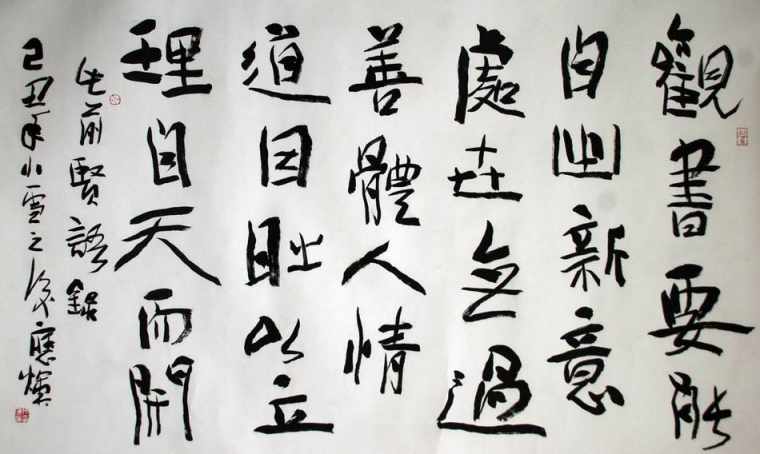 觀書要能
自出新意
處世無過
善體人情
道因耻以立
理自天而開
前賢語錄
己丑年小雪之後應